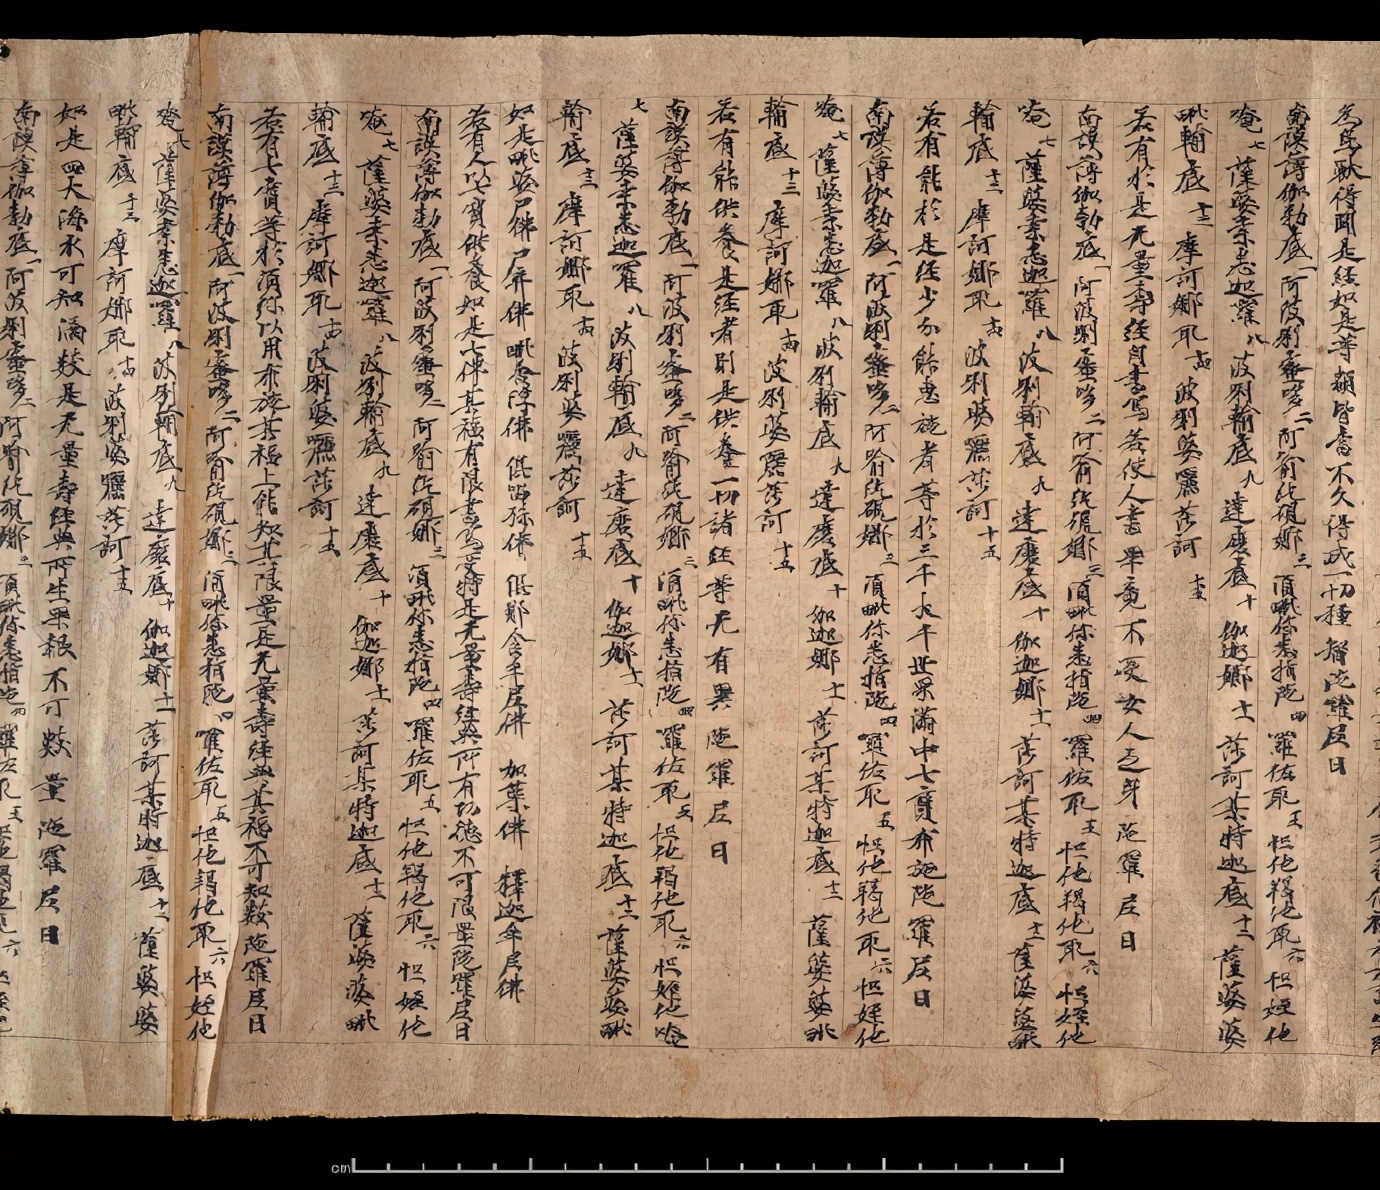 鳥兽得聞是經如是等類皆當不久得成一切種智陁羅尼曰
南謨薄伽勃底一 阿波唎蜜哆二 阿喻紇硯娜三 湏毗你悉指陁四 羅佐耶五 怛他羯他耶六 怛姪他
唵七 薩婆桒悉迦羅八 波唎輸底九 達磨底十 伽迦娜十一 莎訶某特迦底十二 薩婆婆
毗輸底十三 摩訶娜耶十四 波唎婆羅莎訶十五
若有於是无量壽經自書寫若使人書畢竟不受女人之身陁羅尼曰
南謨薄伽勃底一 阿波唎蜜哆二 阿喻紇硯娜三 湏毗你悉指陁四 羅佐耶五 怛他羯他耶六 怛姪他
唵七 薩婆桒悉迦羅八 波唎輸底九 達磨底十 伽迦娜十一 莎訶某特迦底十二 薩婆婆毗
輸底十三 摩訶娜耶十四 波唎婆羅莎訶十五
若有能於是經少分能惠施者等於三千大千世界滿中七寶布施陁羅尼曰
南謨薄伽勃底一 阿波唎蜜哆二 阿喻紇硯娜三 湏毗你悉指陁四 羅佐耶五 怛他羯他耶六 怛姪他
唵七 薩婆桒悉迦羅八 波唎輸底九 達磨底十 伽迦娜十一 莎訶某特迦底十二 薩婆婆毗
輸底十三 摩訶娜耶十四 波唎婆羅莎訶十五
若有能供養是經者則是供養一切諸經等无有異陁羅尼曰
南謨薄伽勃底一 阿波唎蜜哆二 阿喻紇硯娜三 湏毗你悉指陁四 羅佐耶五 怛他羯他耶六 怛姪他唵
七 薩婆桒悉迦羅八 波唎輸底九 達磨底十 伽迦娜十一 莎訶某特迦底十二 薩婆婆毗
輸底十三 摩訶娜耶十四 波唎婆羅莎訶十五
如是毗婆尸佛 尸棄佛 毗舍浮佛 俱留孫佛 俱那含牟尼佛 加葉佛 釋迦牟尼佛
若有人以七寶供養如是七佛其福有限書寫受持是无量壽經典所有功德不可限量陁羅尼曰
南謨薄伽勃底一 阿波唎蜜哆二 阿喻紇硯娜三 湏毗你悉指陁四 羅佐耶五 怛他羯他耶六 怛姪他
唵七 薩婆桒悉迦羅八 波唎輸底九 達磨底十 伽迦娜十一 莎訶某特迦底十二 薩婆婆毗
輸底十三 摩訶娜耶十四 波唎婆羅莎訶十五
若有七寶等於湏弥以用布施其福上能知其限量是无量壽經典其福不可知數陁羅尼曰
南謨薄伽勃底一 阿波唎蜜哆二 阿喻紇硯娜三 湏毗你悉指陁四 羅佐耶五 怛他羯他耶六 怛姪他
唵七 薩婆桒悉迦羅八 波唎輸底九 達磨底十 伽迦娜十一 莎訶某特迦底十二 薩婆婆
毗輸底十三 摩訶娜耶十四 波唎婆羅莎訶十五
如是四大海水可知滴數是无量壽經典所生果報不可數量陁羅尼曰
南謨薄伽勃底一 阿波唎蜜哆二 阿喻紇硯娜三 湏毗你悉指陁四 羅佐耶五 怛他羯他耶六 怛姪他
cm